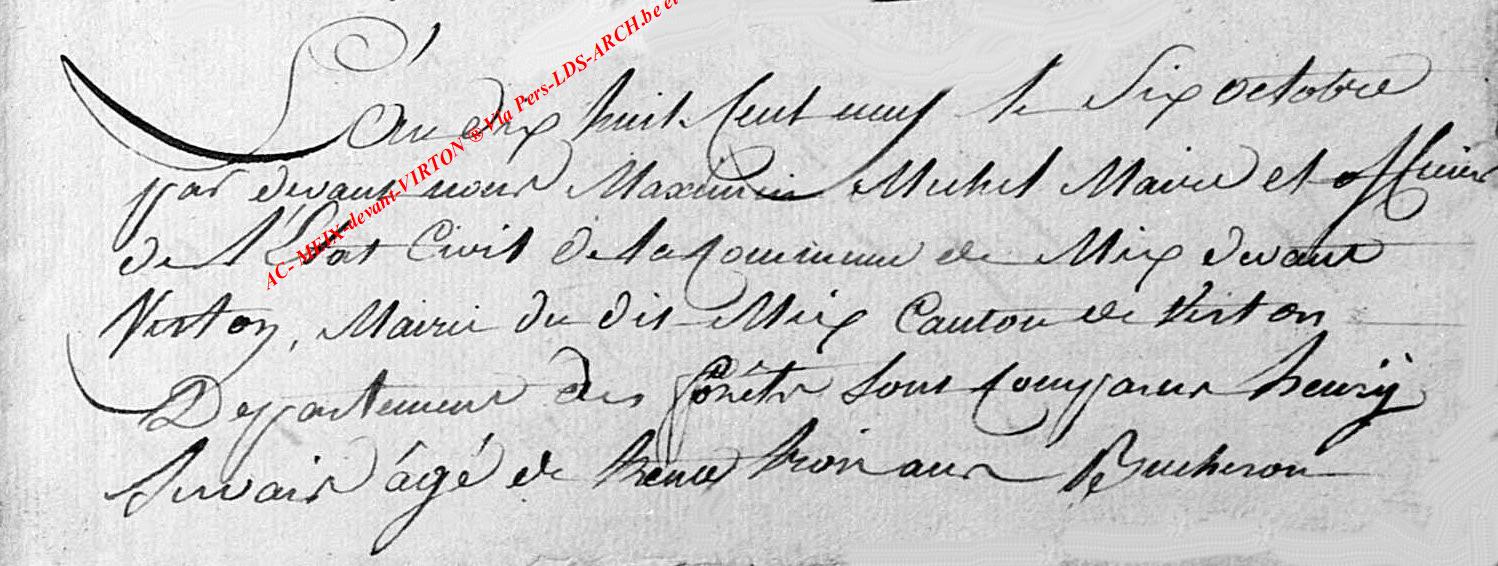 AC- MEIX-devant-VIRTON ® Via Pers-LDS-ARCH.be et
L'an dix huit Cent neuf le Six octobre
par devant nous Maximin Michel Maire et officier
de l'Etat Civil de la Commune de Meix devant
Virton, Mairie du dit Meix Canton de Virton
Departement des forêts sont Comparus henrÿ
Servais âgé de trente trois ans Bucheron